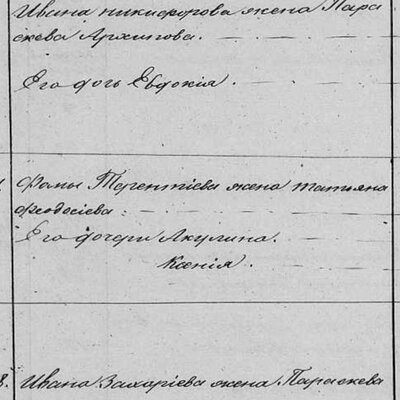 Ивана Никифорова жена Пара
скева Архипова.
Его дочь Евдокія.
Фомы Терентіева жена Татьяна
Феодосіева
Его дочери Акулина.
Ксенія.
8. Ивана Захаріева жена Параскева